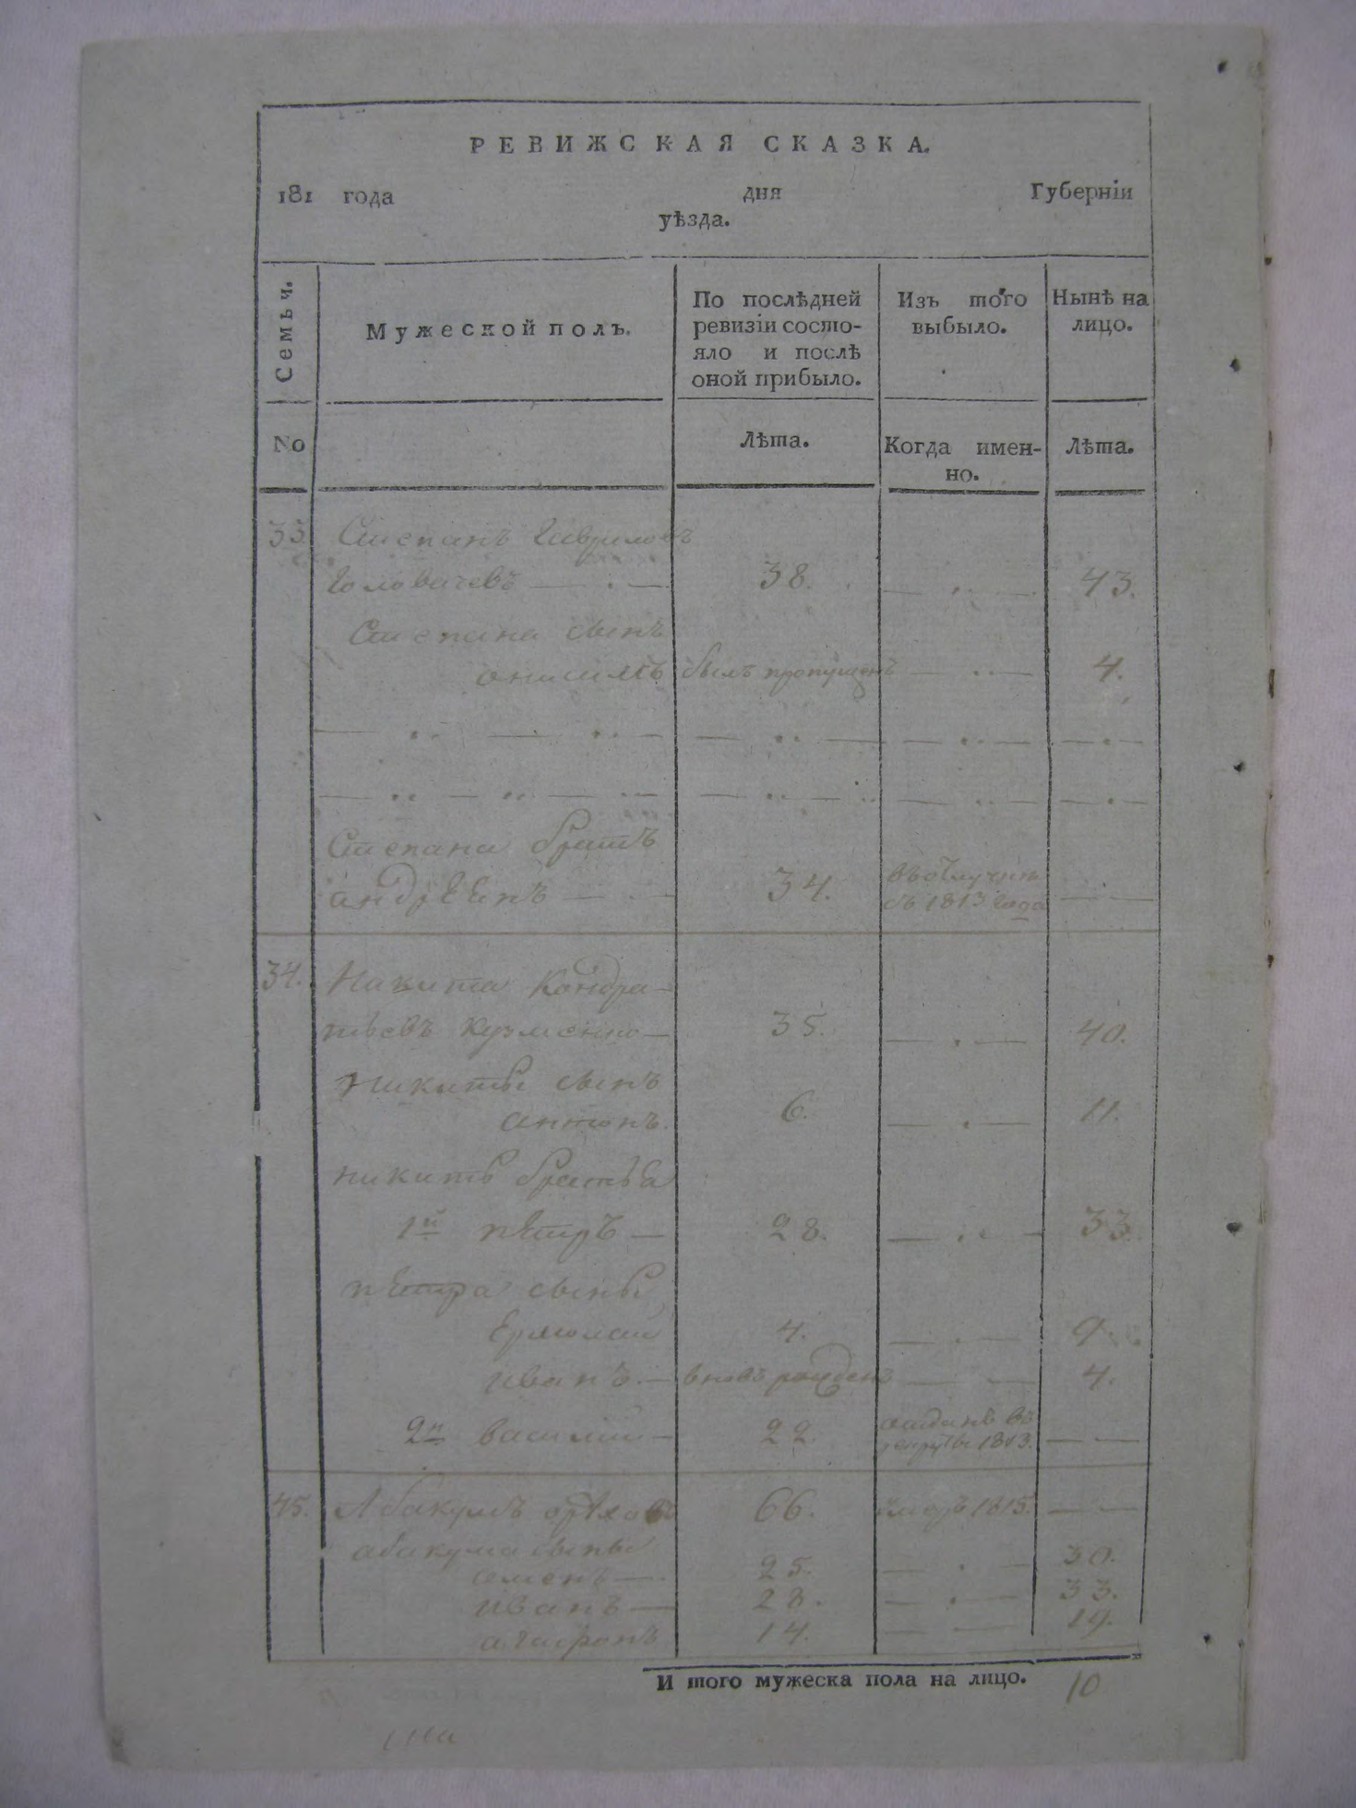 РЕВИЖСКАЯ СКАЗКА.
181 года дня Губерніи
уѣзда.
Семьи.
Мужеской полъ.
По послѣдней ревизіи состо-
яло и послѣ
оной прибыло.
Изъ того
выбыло.
Нынѣ на
лицо.
No
Лѣта.
Когда имен-
но.
Лѣта.
33. Степанъ Гавриловъ
Головачевъ 38. 43.
Степана сынъ
онисимъ былъ пропущенъ 4.
Степана братъ
андрѣянъ 34. въ отлучкѣ
съ 1813 года
34. Никита Кондра-
тьевъ Кузменко 35. 40.
Никиты сынъ
антонъ. 6. 11.
никиты братья
1й пЕтръ 28. 33.
пЕтра сыны
Ермолай 4. 9.
иванъ. вновь рожденъ 4.
2й василий 22. отданъ въ
рекруты 1813.
35. Абакумъ орѣховъ 66. умеръ 1815.
абакума сыны
семенъ 25. 30.
иванъ 28. 33.
агафонъ 14. 19.
И того мужеска пола на лицо. 10